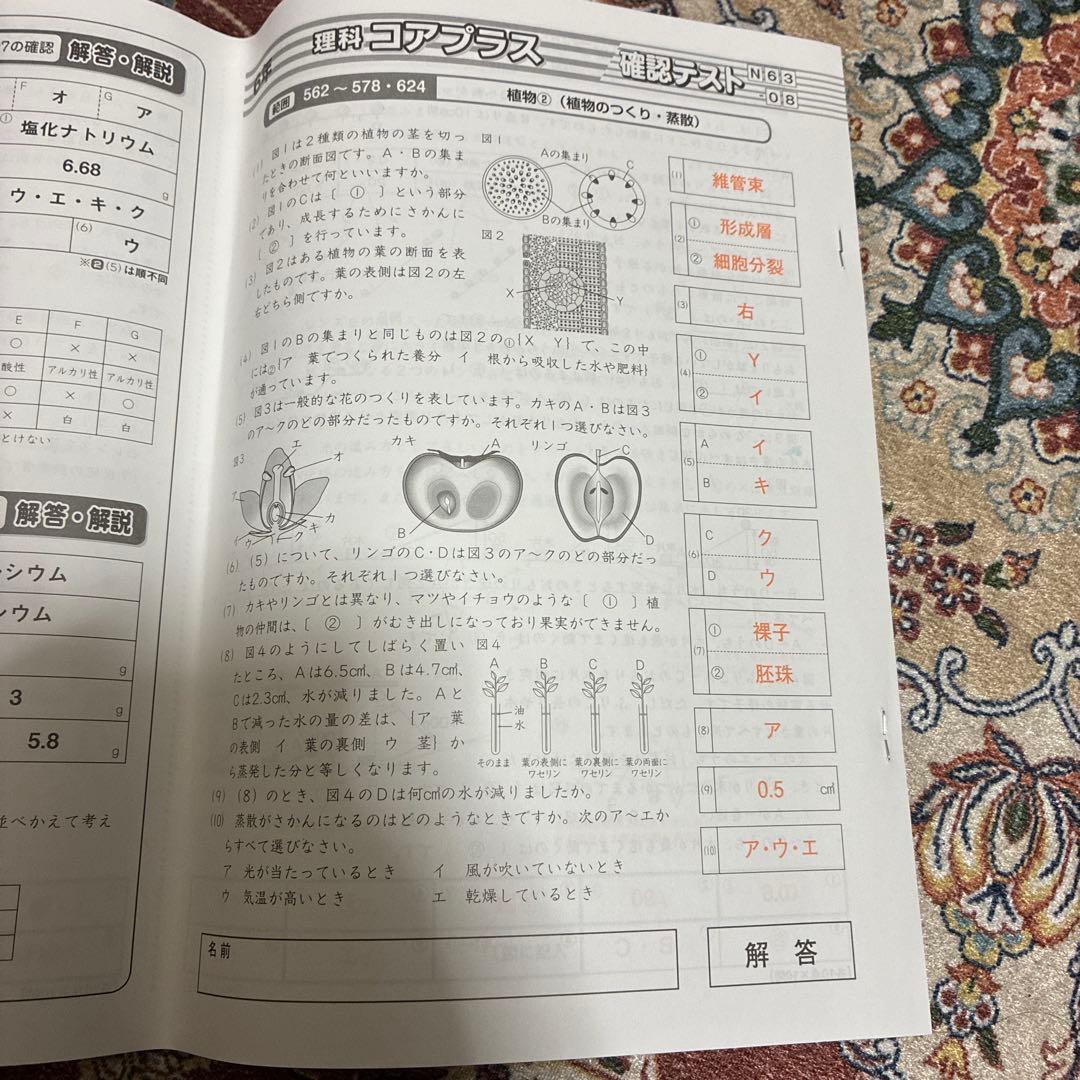 7の確認 解答・解説
F オ G ア
① 塩化ナトリウム
6.68 g
ウ・エ・キ・ク
(6) ウ
※2(5)は順不同
E F G
○ × ×
酸性 アルカリ性 アルカリ性
○ × ○
× 白 白
とけない
解答・解説
シウム
シウム
g
3 g
5.8
並べかえて考え
6年 理科 コアプラス 確認テスト N63-08
範囲 562～578・624 植物②（植物のつくり・蒸散）
(1) 図1は2種類の植物の茎を切っ
たときの断面図です。A・Bの集ま
りを合わせて何といいますか。
(2) 図1のCは〔 ① 〕という部分
であり、成長するためにさかんに
〔 ② 〕を行っています。
(3) 図2はある植物の葉の断面を表
したものです。葉の表側は図2の左
右どちら側ですか。
図1
Aの集まり C
Bの集まり
図2
X Y
(4) 図1のBの集まりと同じものは図2の①{X Y}で、この中
には②{ア 葉でつくられた養分 イ 根から吸収した水や肥料}
が通っています。
(5) 図3は一般的な花のつくりを表しています。カキのA・Bは図3
のア～クのどの部分だったものですか。それぞれ1つ選びなさい。
図3 エ オ カキ A リンゴ C
ア
カ
キ
イ ウ ク B D
(6) (5)について、リンゴのC・Dは図3のア～クのどの部分だっ
たものですか。それぞれ1つ選びなさい。
(7) カキやリンゴとは異なり、マツやイチョウのような〔 ① 〕植
物の仲間は、〔 ② 〕がむき出しになっており果実ができません。
(8) 図4のようにしてしばらく置い
たところ、Aは6.5㎤、Bは4.7㎤、
Cは2.3㎤、水が減りました。Aと
Bで減った水の量の差は、{ア 葉
の表側 イ 葉の裏側 ウ 茎}か
ら蒸発した分と等しくなります。
図4
A B C D
油
水
そのまま 葉の表側にワセリン 葉の裏側にワセリン 葉の両面にワセリン
(9) (8)のとき、図4のDは何㎤の水が減りましたか。
(10) 蒸散がさかんになるのはどのようなときですか。次のア～エか
らすべて選びなさい。
ア 光が当たっているとき イ 風が吹いていないとき
ウ 気温が高いとき エ 乾燥しているとき
(1) 維管束
(2) ① 形成層
② 細胞分裂
(3) 右
(4) ① Y
② イ
(5) A イ
B キ
(6) C ク
D ウ
(7) ① 裸子
② 胚珠
(8) ア
(9) 0.5 ㎤
(10) ア・ウ・エ
名前
解答